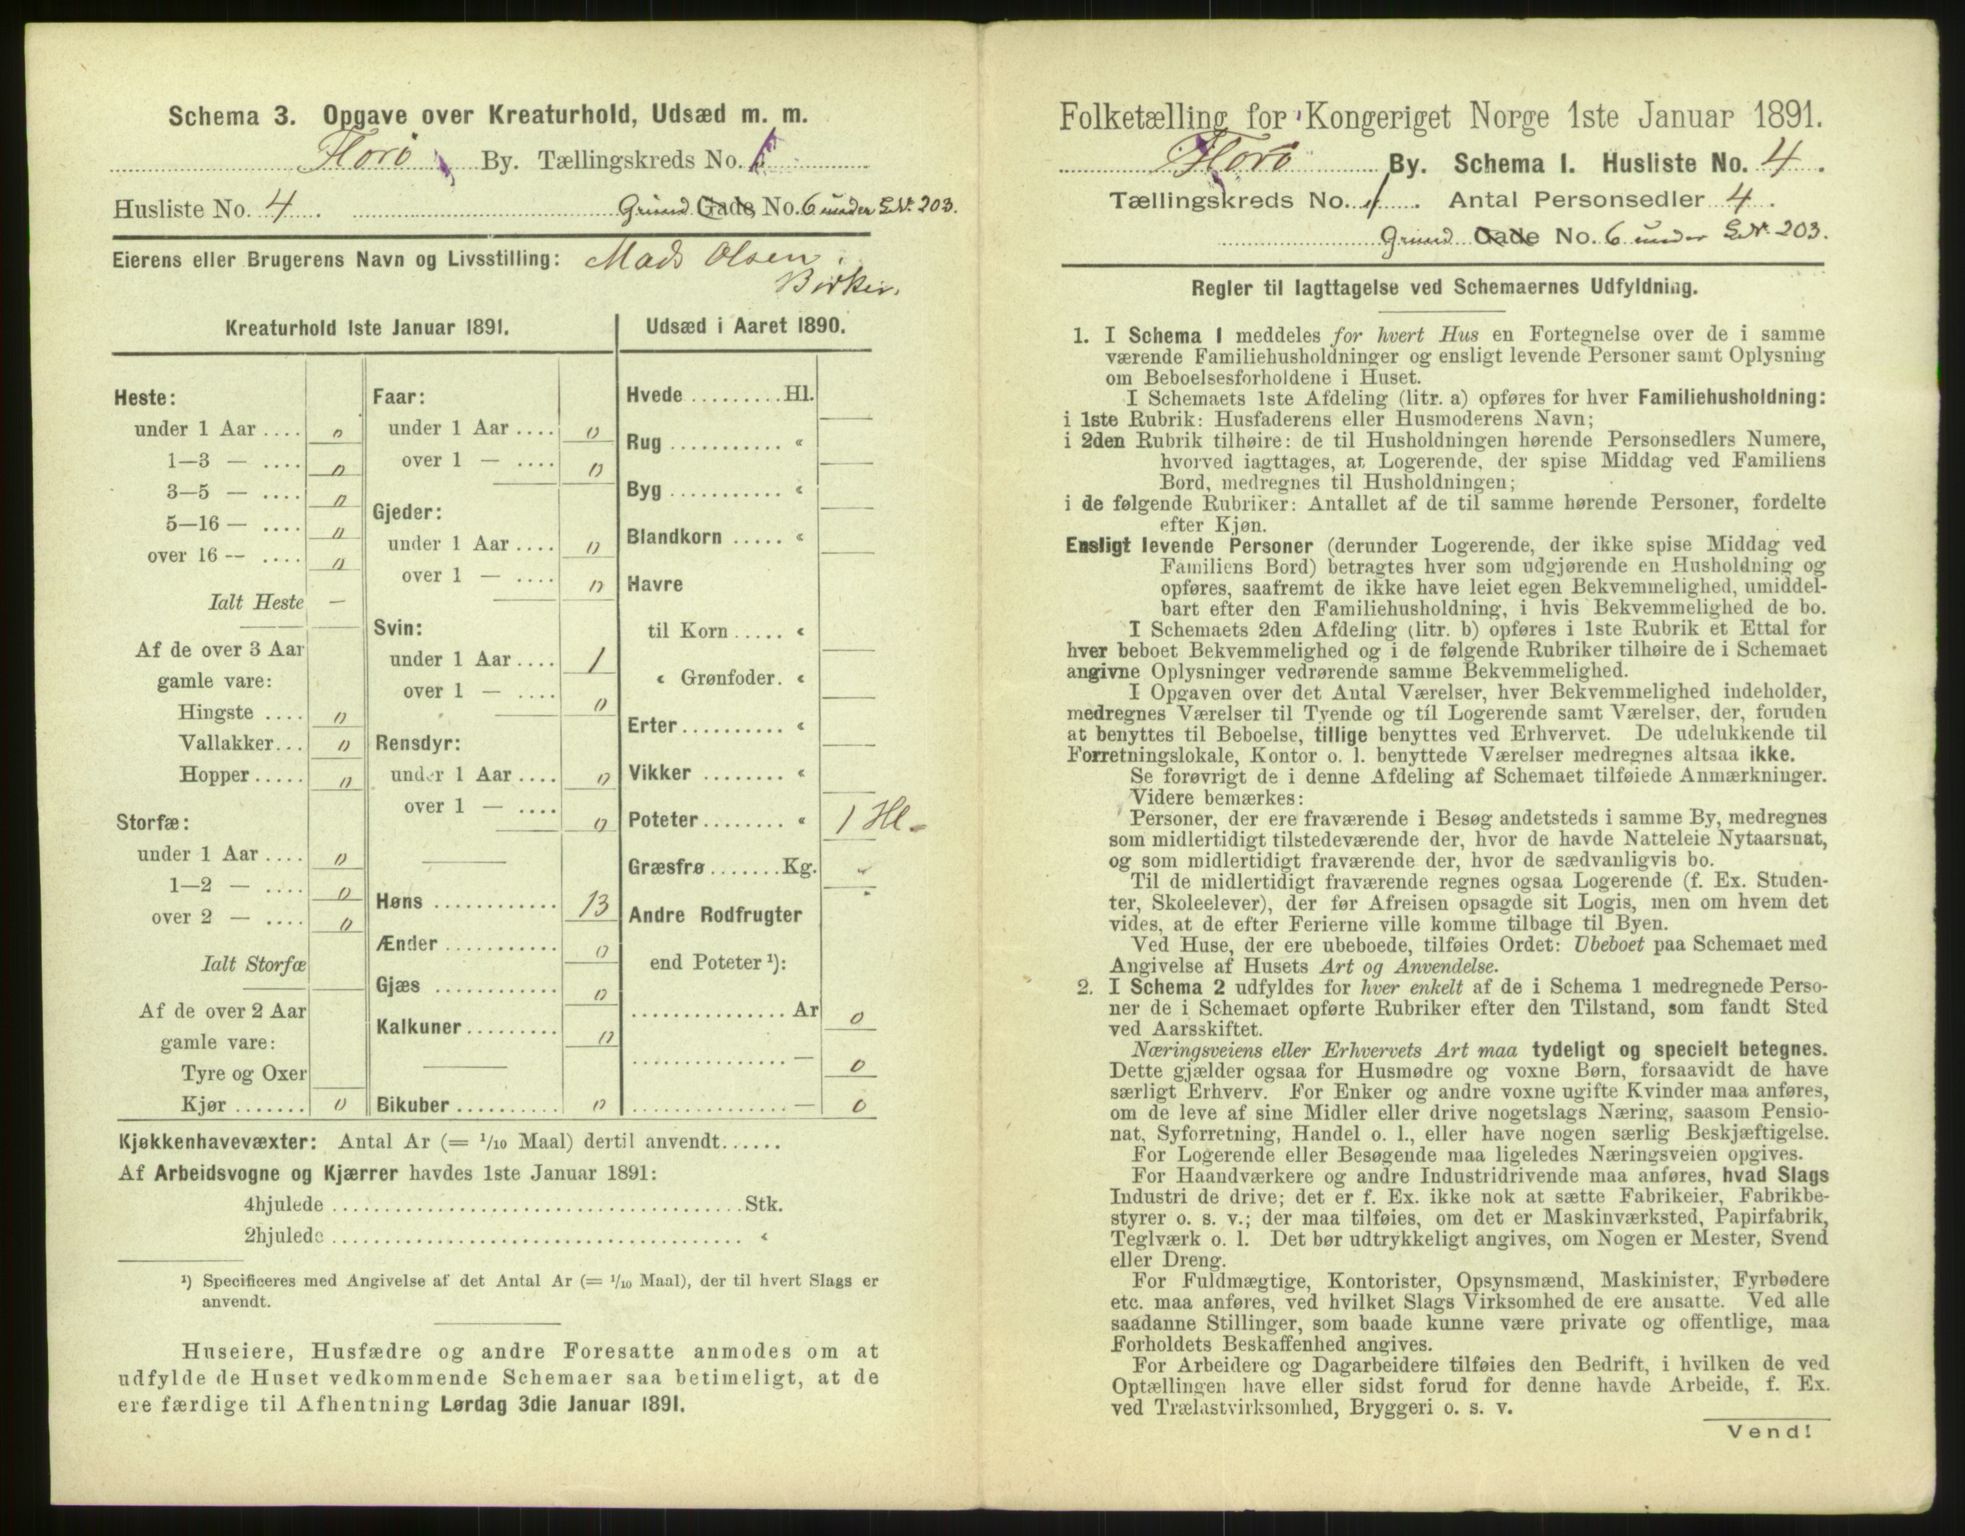 Schema 3. Opgave over Kreaturhold, Udsæd m. m.
Florø By. Tællingskreds No. 1
Husliste No. 4. Grund Gade No. 6 under L.Nr. 203.
Eierens eller Brugerens Navn og Livsstilling: Mads Olsen
Kreaturhold 1ste Januar 1891.
Heste:
under 1 Aar .... 0
1—3 — .... 0
3—5 — .... 0
5—16 — .... 0
over 16 — .... 0
Ialt Heste —
Af de over 3 Aar
gamle vare:
Hingste .... 0
Vallakker... 0
Hopper ..... 0
Storfæ:
under 1 Aar .... 0
1—2 — .... 0
over 2 — .... 0
Ialt Storfæ
Af de over 2 Aar
gamle vare:
Tyre og Oxer
Kjør ....... 0
Faar:
under 1 Aar .... 0
over 1 — .... 0
Gjeder:
under 1 Aar .... 0
over 1 — .... 0
Svin:
under 1 Aar .... 1
over 1 — .... 0
Rensdyr:
under 1 Aar .... 0
over 1 — .... 0
Høns ............ 13
Ænder ........... 0
Gjæs ............ 0
Kalkuner ......... 0
Bikuber .......... 0
Udsæd i Aaret 1890.
Hvede ......... Hl.
Rug ........... «
Byg ........... «
Blandkorn ..... «
Havre
til Korn ..... «
« Grønfoder. «
Erter .......... «
Vikker ........ «
Poteter ........ « 1 Hl
Græsfrø ....... Kg.
Andre Rodfrugter
end Poteter ¹):
............... Ar 0
............... — 0
............... — 0
Kjøkkenhavevæxter: Antal Ar (= 1/10 Maal) dertil anvendt......
Af Arbeidsvogne og Kjærrer havdes 1ste Januar 1891:
4hjulede .................................... Stk.
2hjulede .................................... «
¹) Specificeres med Angivelse af det Antal Ar (= 1/10 Maal), der til hvert Slags er
anvendt.
Huseiere, Husfædre og andre Foresatte anmodes om at
udfylde de Huset vedkommende Schemaer saa betimeligt, at de
ere færdige til Afhentning Lørdag 3die Januar 1891.
Folketælling for Kongeriget Norge 1ste Januar 1891.
Florø By. Schema I. Husliste No. 4.
Tællingskreds No. 1. Antal Personsedler 4.
Grund Gade No. 6 under L.Nr. 203.
Regler til Iagttagelse ved Schemaernes Udfyldning.
1. I Schema 1 meddeles for hvert Hus en Fortegnelse over de i samme
værende Familiehusholdninger og ensligt levende Personer samt Oplysning
om Beboelsesforholdene i Huset.
I Schemaets 1ste Afdeling (litr. a) opføres for hver Familiehusholdning:
i 1ste Rubrik: Husfaderens eller Husmoderens Navn;
i 2den Rubrik tilhøire: de til Husholdningen hørende Personsedlers Numere,
hvorved iagttages, at Logerende, der spise Middag ved Familiens
Bord, medregnes til Husholdningen;
i de følgende Rubriker: Antallet af de til samme hørende Personer, fordelte
efter Kjøn.
Ensligt levende Personer (derunder Logerende, der ikke spise Middag ved
Familiens Bord) betragtes hver som udgjørende en Husholdning og
opføres, saafremt de ikke have leiet egen Bekvemmelighed, umiddel-
bart efter den Familiehusholdning, i hvis Bekvemmelighed de bo.
I Schemaets 2den Afdeling (litr. b) opføres i 1ste Rubrik et Ettal for
hver beboet Bekvemmelighed og i de følgende Rubriker tilhøire de i Schemaet
angivne Oplysninger vedrørende samme Bekvemmelighed.
I Opgaven over det Antal Værelser, hver Bekvemmelighed indeholder,
medregnes Værelser til Tyende og til Logerende samt Værelser, der, foruden
at benyttes til Beboelse, tillige benyttes ved Erhvervet. De udelukkende til
Forretningslokale, Kontor o. l. benyttede Værelser medregnes altsaa ikke.
Se forøvrigt de i denne Afdeling af Schemaet tilføiede Anmærkninger.
Videre bemærkes:
Personer, der ere fraværende i Besøg andetsteds i samme By, medregnes
som midlertidigt tilstedeværende der, hvor de havde Natteleie Nytaarsnat,
og som midlertidigt fraværende der, hvor de sædvanligvis bo.
Til de midlertidigt fraværende regnes ogsaa Logerende (f. Ex. Studen-
ter, Skoleelever), der før Afreisen opsagde sit Logis, men om hvem det
vides, at de efter Ferierne ville komme tilbage til Byen.
Ved Huse, der ere ubeboede, tilføies Ordet: Ubeboet paa Schemaet med
Angivelse af Husets Art og Anvendelse.
2. I Schema 2 udfyldes for hver enkelt af de i Schema 1 medregnede Perso-
ner de i Schemaet opførte Rubriker efter den Tilstand, som fandt Sted
ved Aarsskiftet.
Næringsveiens eller Erhvervets Art maa tydeligt og specielt betegnes.
Dette gjælder ogsaa for Husmødre og voxne Børn, forsaavidt de have
særligt Erhverv. For Enker og andre voxne ugifte Kvinder maa anføres,
om de leve af sine Midler eller drive nogetslags Næring, saasom Pensio-
nat, Syforretning, Handel o. l., eller have nogen særlig Beskjæftigelse.
For Logerende eller Besøgende maa ligeledes Næringsveien opgives.
For Haandværkere og andre Industridrivende maa anføres, hvad Slags
Industri de drive; det er f. Ex. ikke nok at sætte Fabrikeier, Fabrikbe-
styrer o. s. v.; der maa tilføies, om det er Maskinværksted, Papirfabrik,
Teglværk o. l. Det bør udtrykkeligt angives, om Nogen er Mester, Svend
eller Dreng.
For Fuldmægtige, Kontorister, Opsynsmænd, Maskinister, Fyrbødere
etc. maa anføres, ved hvilket Slags Virksomhed de ere ansatte. Ved alle
saadanne Stillinger, som baade kunne være private og offentlige, maa
Forholdets Beskaffenhed angives.
For Arbeidere og Dagarbeidere tilføies den Bedrift, i hvilken de ved
Optællingen have eller sidst forud for denne havde Arbeide, f. Ex.
ved Trælastvirksomhed, Bryggeri o. s. v.
Vend!